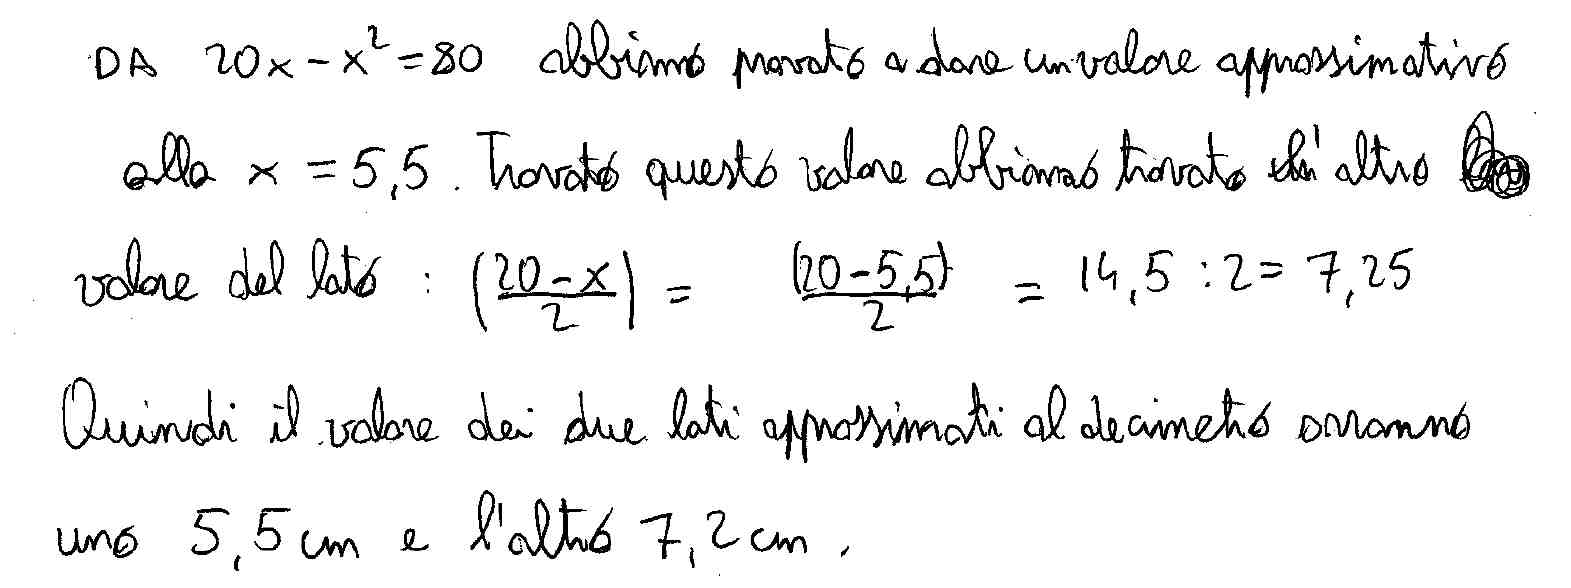 DA 20x - x² = 80 abbiamo provato a dare un valore approssimativo
alla x = 5,5. Trovato questo valore abbiamo trovato altro
valore del lato : (20-x / 2) = (20-5,5) / 2 = 14,5 : 2 = 7,25
Quindi il valore dei due lati approssimati al decimetro saranno
uno 5,5 cm e l'altro 7,2 cm.